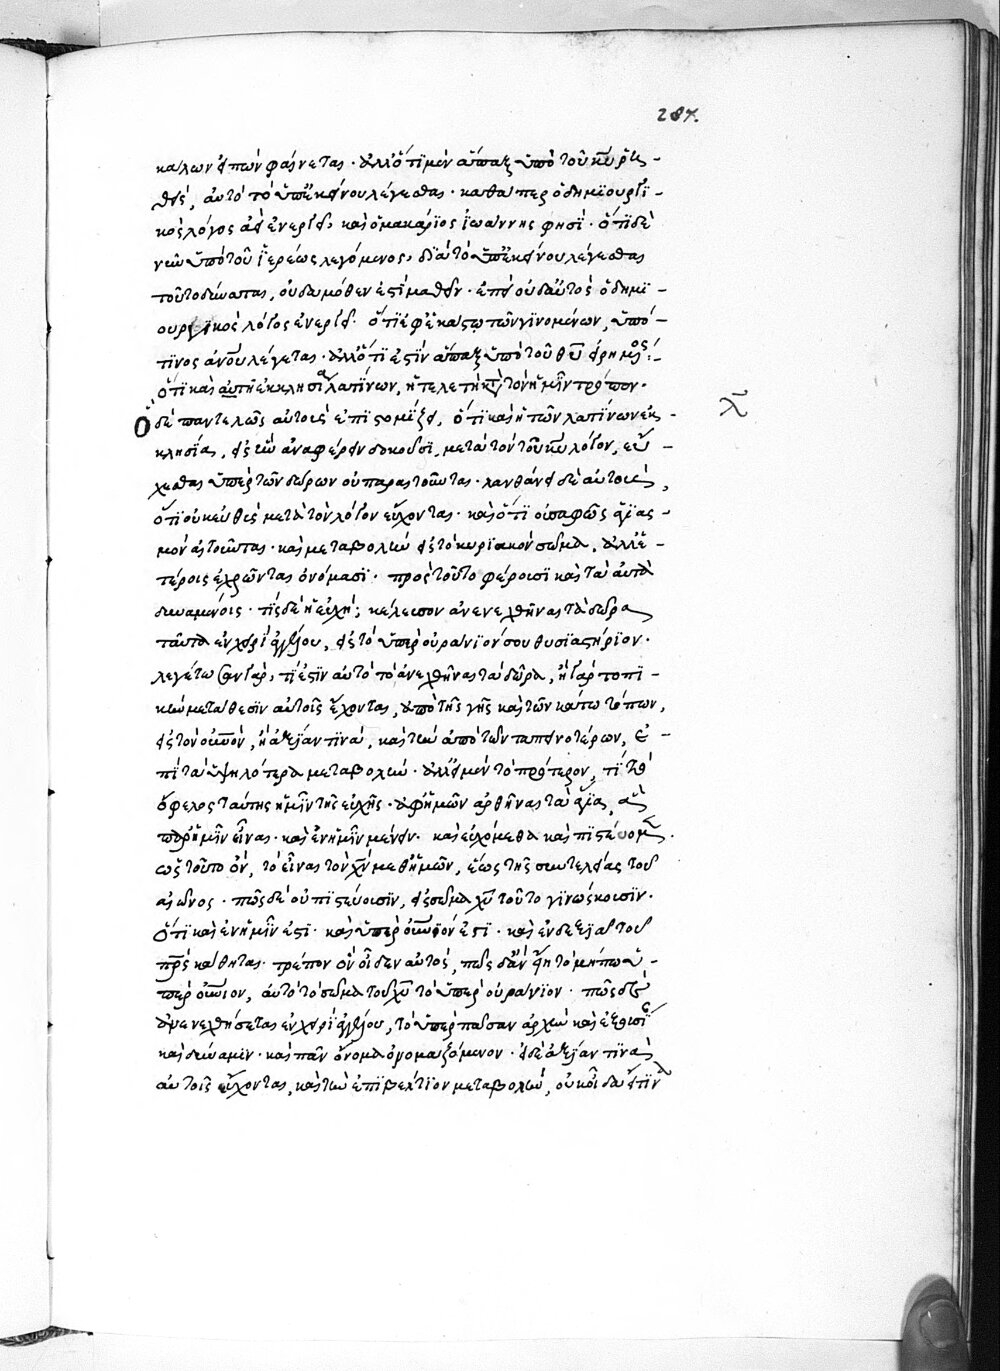 287.
καλων εἰπὼν φαίνεται · ἀλλ' ὅτι μὲν ἅπαξ ὑπὸ τοῦ κυ ῥη-
θεὶς, αὐτὸ τὸ ὑπ' ἐκείνου λέγεσθαι · καθάπερ ὁ δημιουργι-
κὸς λόγος ἀεὶ ἐνεργεῖ, καὶ ὁ μακάριος Ἰωάννης φησὶ · ὅτι δὲ
νῦν ὑπὸ τοῦ ἱερέως λεγόμενος, διὰ τὸ ὑπ' ἐκείνου λέγεσθαι
τοῦτο δύναται, οὐδαμόθεν ἔστι μαθεῖν · ἐπεὶ οὐδ' αὐτὸς ὁ δημι-
ουργικὸς λόγος ἐνεργεῖ · ὅτι ἐφ' ἑκάστῳ τῶν γινομένων, ὑπό
τινος ἀνου λέγεται · ἀλλ' ὅτι ἐστὶν ἅπαξ ὑπὸ τοῦ θυ εἰρημένος :-
Ὅτι καὶ αὐτῇ ἐκκλησίᾳ λατίνων, ἡ τελετὴ κατὰ τὸν ἡμῖν τρόπον ·
Ὃ δὲ παντελῶς αὐτοὺς ἐπιστομίζει, ὅτι καὶ ἡ τῶν λατίνων ἐκ-
λ
κλησία, εἰς ἣν ἀναφέρειν δοκοῦσι, μετὰ τὸν τοῦ κυ λόγον, εὔ-
χεσθαι ὑπὲρ τῶν δώρων οὐ παραιτοῦνται · λανθάνει δὲ αὐτοὺς,
ὅτι οὐκ εὐθὺς μετὰ τὸν λόγον εὔχονται · καὶ ὅτι οὐ σαφῶς ἁγιας-
μὸν αἰτοῦνται · καὶ μεταβολὴν εἰς τὸ κυριακὸν σῶμα, ἀλλ' ἑ-
τέροις ἐχρῶνται ὀνόμασι · πρὸς τοῦτο φέρουσι καὶ τὰ αὐτὰ
δυναμένοις · τίς δὲ ἡ εὐχή ; κέλευσον ἀνενεχθῆναι τὰ δῶρα
ταῦτα ἐν χειρὶ ἀγγέλου, εἰς τὸ ὑπερουράνιόν σου θυσιαστήριον ·
λεγέτωσαν γὰρ, τί ἐστιν αὐτὸ τὸ ἀνενεχθῆναι τὰ δῶρα, ἢ γὰρ τοπι-
κὴν μετάθεσιν αὐτοῖς εὔχονται, ἀπὸ τῆς γῆς καὶ τῶν κάτω τόπων,
εἰς τὸν οὐνὸν, ἢ ἀξίαν τινὰ, καὶ τὴν ἀπὸ τῶν ταπεινοτέρων, ἐ-
πὶ τὰ ὑψηλότερα μεταβολὴν · ἀλλ' εἰ μὲν τὸ πρότερον, τί τὸ
ὄφελος ταύτης ἡμῖν τῆς εὐχῆς · ἀφ' ἡμῶν ἀρθῆναι τὰ ἅγια, ἃ
παρ' ἡμῖν εἶναι · καὶ ἐν ἡμῖν μένειν · καὶ εὐχόμεθα καὶ πιστεύομεν ·
ὡς τοῦτο ὂν, τὸ εἶναι τὸν χν μεθ' ἡμῶν, ἕως τῆς συντελείας τοῦ
αἰῶνος · πῶς δὲ οὐ πιστεύουσιν, εἰ σῶμα χυ τοῦτο γινώσκουσιν ·
ὅτι καὶ ἐν ἡμῖν ἐστι · καὶ ὑπερουράνιόν ἐστι · καὶ ἐν δεξιᾷ τοῦ
πρς κάθηται τρόπον ὃν οἶδεν αὐτὸς, πῶς δ' ἂν εἴη τὸ μήπω ὑ-
περουράνιον, αὐτὸ τὸ σῶμα τοῦ χυ τὸ ὑπερουράνιον · πῶς δὲ
ἀνενεχθήσεται ἐν χειρὶ ἀγγέλου, τὸ ὑπὲρ πᾶσαν ἀρχὴν καὶ ἐξουσίαν
καὶ δύναμιν · καὶ πᾶν ὄνομα ὀνομαζόμενον · εἰ δὲ ἀξίαν τινὰ
αὐτοῖς εὔχονται, καὶ τὴν ἐπὶ βέλτιον μεταβολὴν, οὐκ οἶδα εἴ τινα